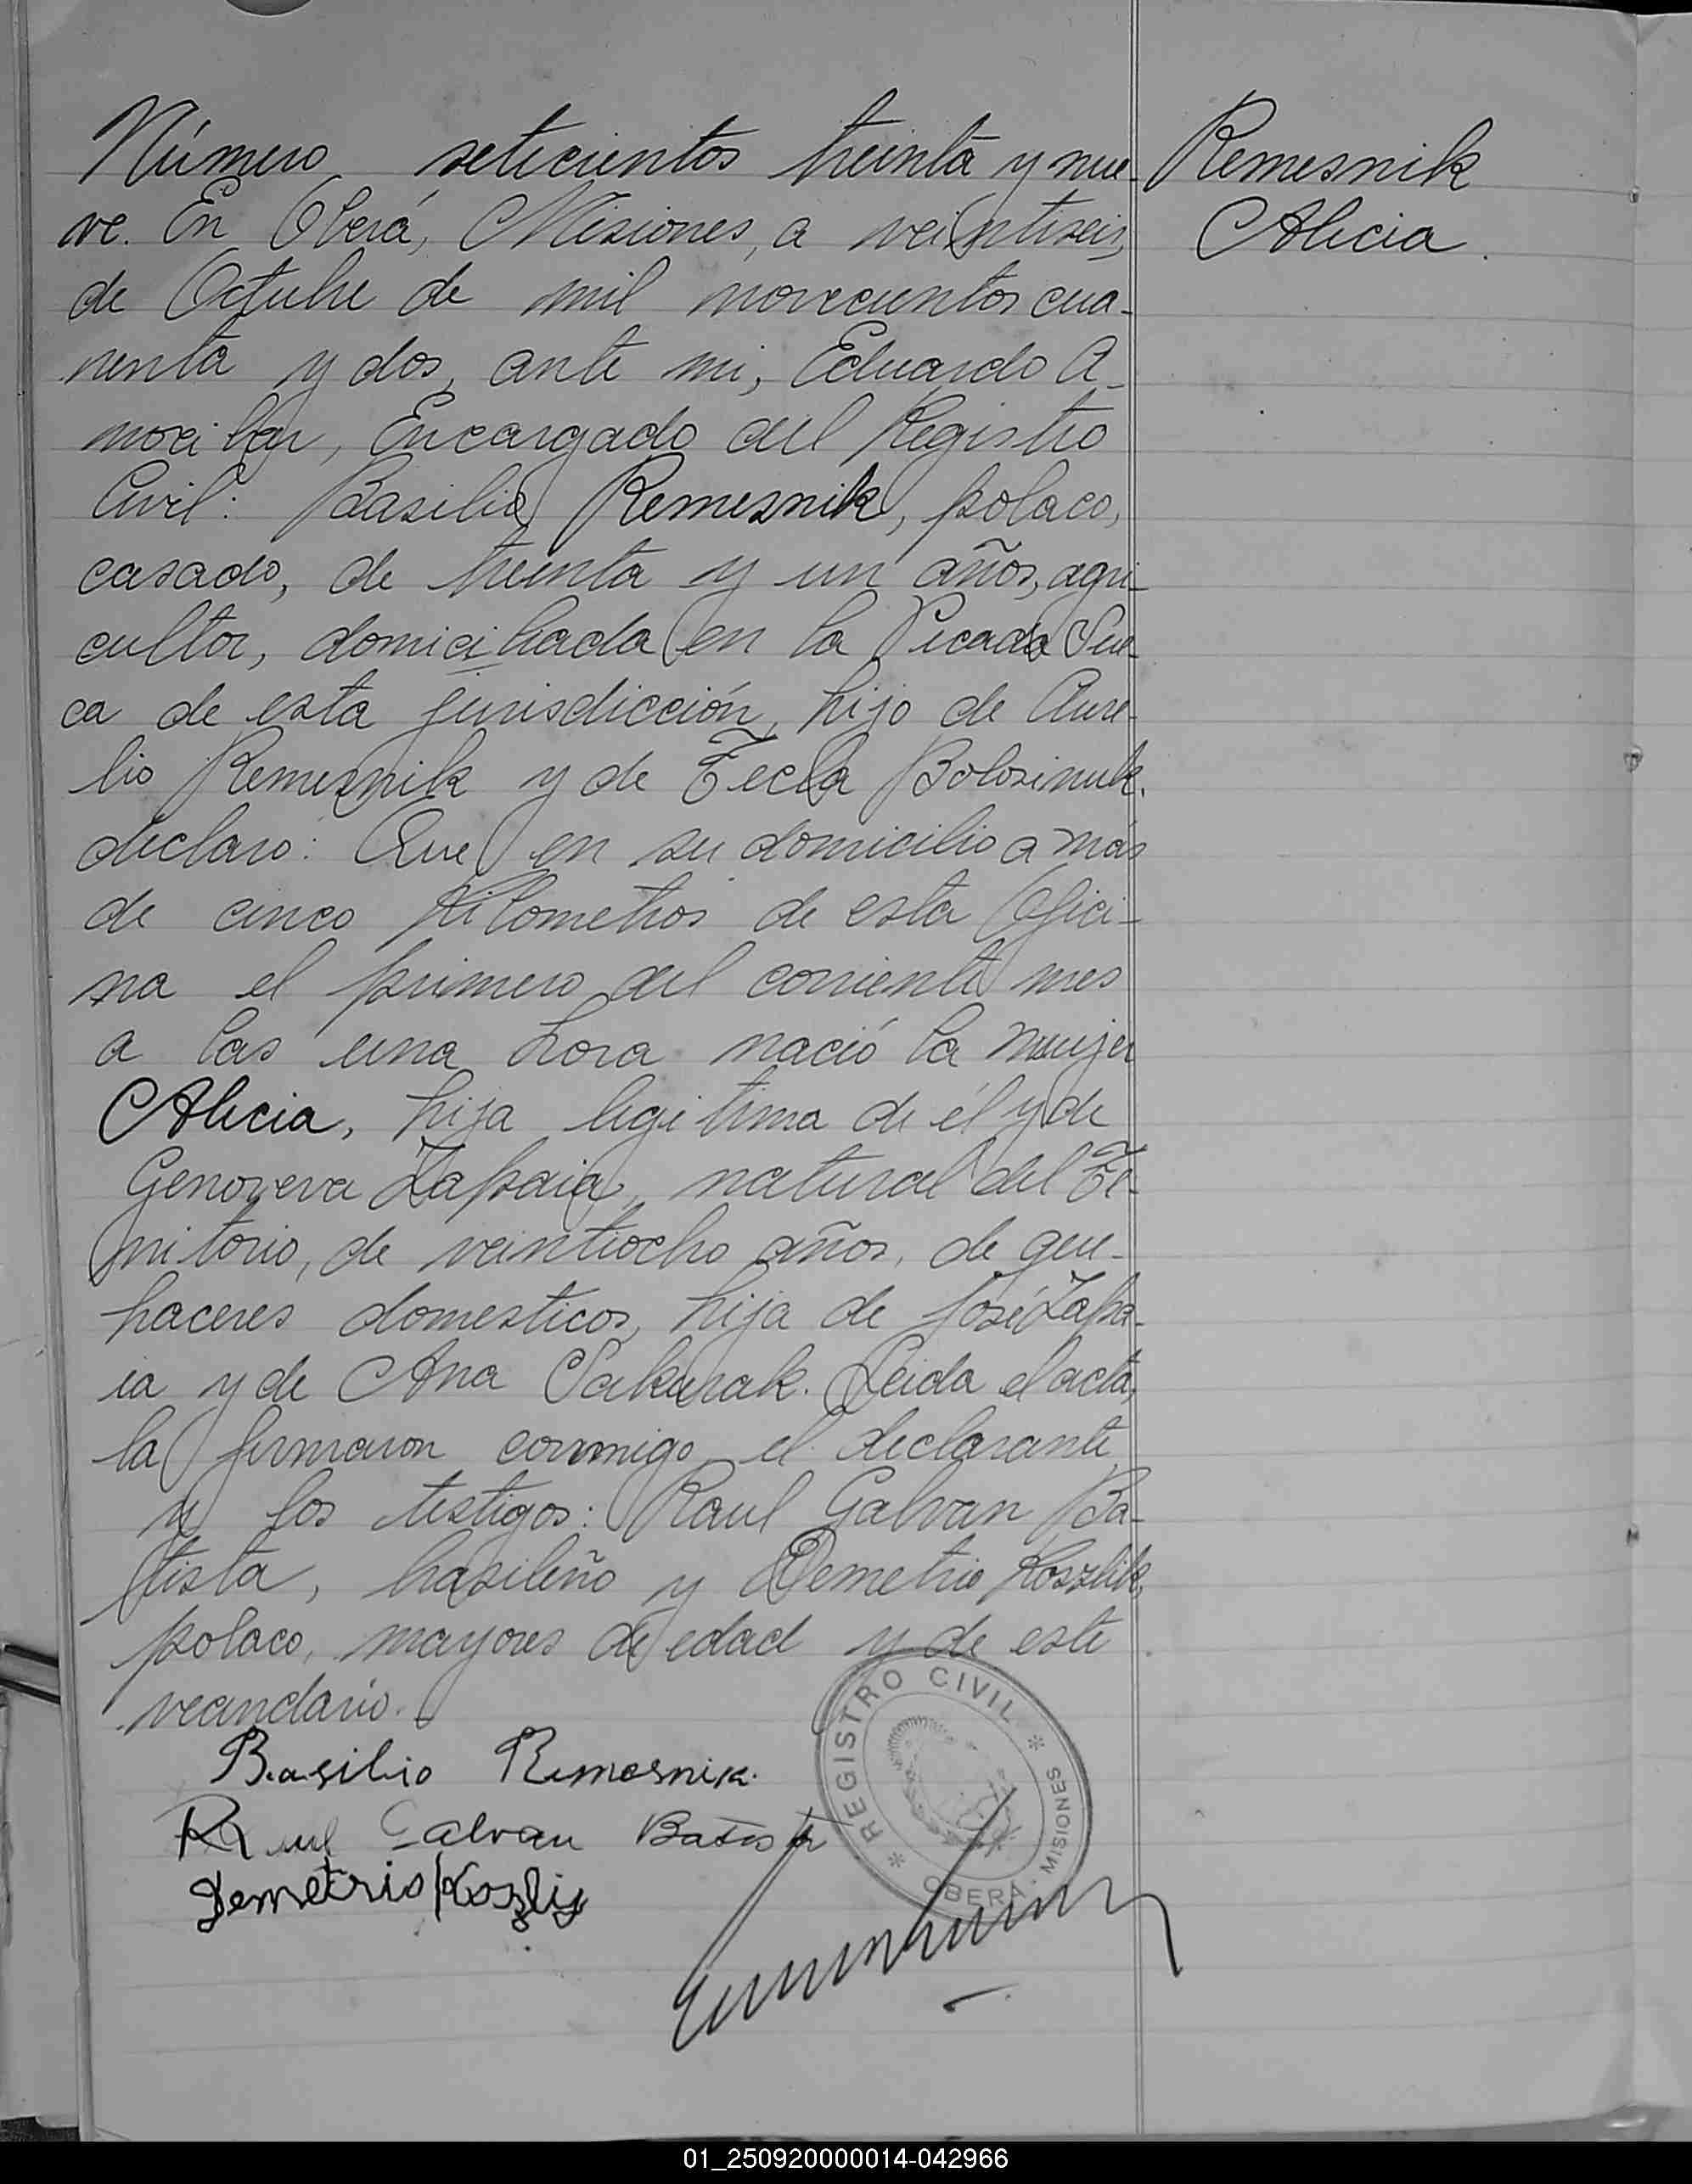 Número seticientos treinta y nue-
ve. En Oberá, Misiones, a veintiseis
de Octubre de mil novecientos cua-
renta y dos, ante mi, Eduardo A-
morilla, Encargado del Registro
Civil: Basilio Remesnik, polaco,
casado, de treinta y un años, agri-
cultor, domiciliada en la Picada Sue-
ca de esta jurisdicción, hijo de Aure-
lio Remesnik y de Tecla Bolosinuk.
declaro: Que en su domicilio a más
de cinco Kilometros de esta Ofici-
na el primero del corriente mes
a las una hora nació la mujer
Alicia, hija legitima de él y de
Genoveva Zapaia, natural del Te-
rritorio, de veintiocho años, de que-
haceres domesticos, hija de José Zapa-
ia y de Ana Sakurak. Leida el acta,
la firmaron conmigo el declarante
y los testigos: Raul Galvan Ba-
tista, brasileño y Demetrio Koszlik,
polaco, mayores de edad y de este
vecindario.
Remesnik
Alicia.
Basilio Remesnik.
Raul Galvan Batista
Demetrio Koszlij
* REGISTRO CIVIL *
OBERA - MISIONES
01_250920000014-042966